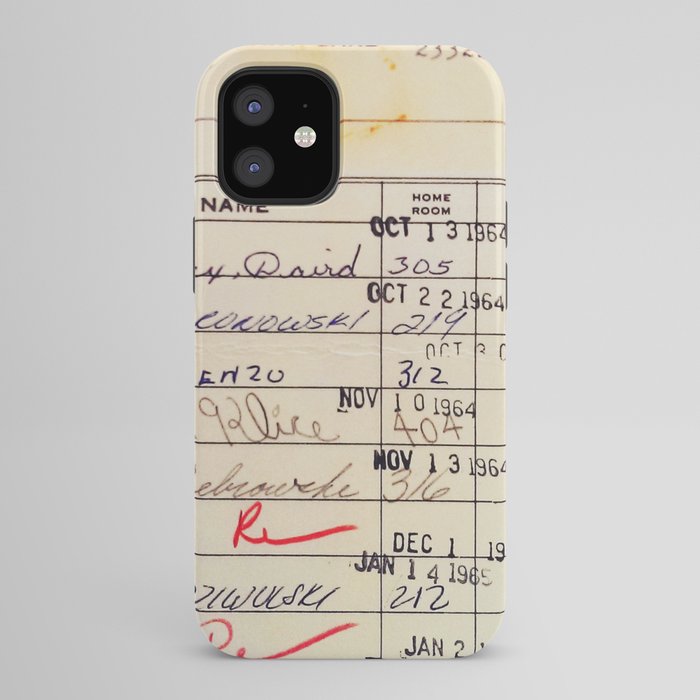 2332
NAME HOME ROOM
OCT 13 1964
David 305
OCT 22 1964
CONOWSKI 219
OCT 3 0
ENZO 312
NOV 10 1964
404
NOV 13 1964
ebrowske 316
Re
DEC 1 19
JAN 14 1965
ZIWULSKI 212
Re
JAN 2 1